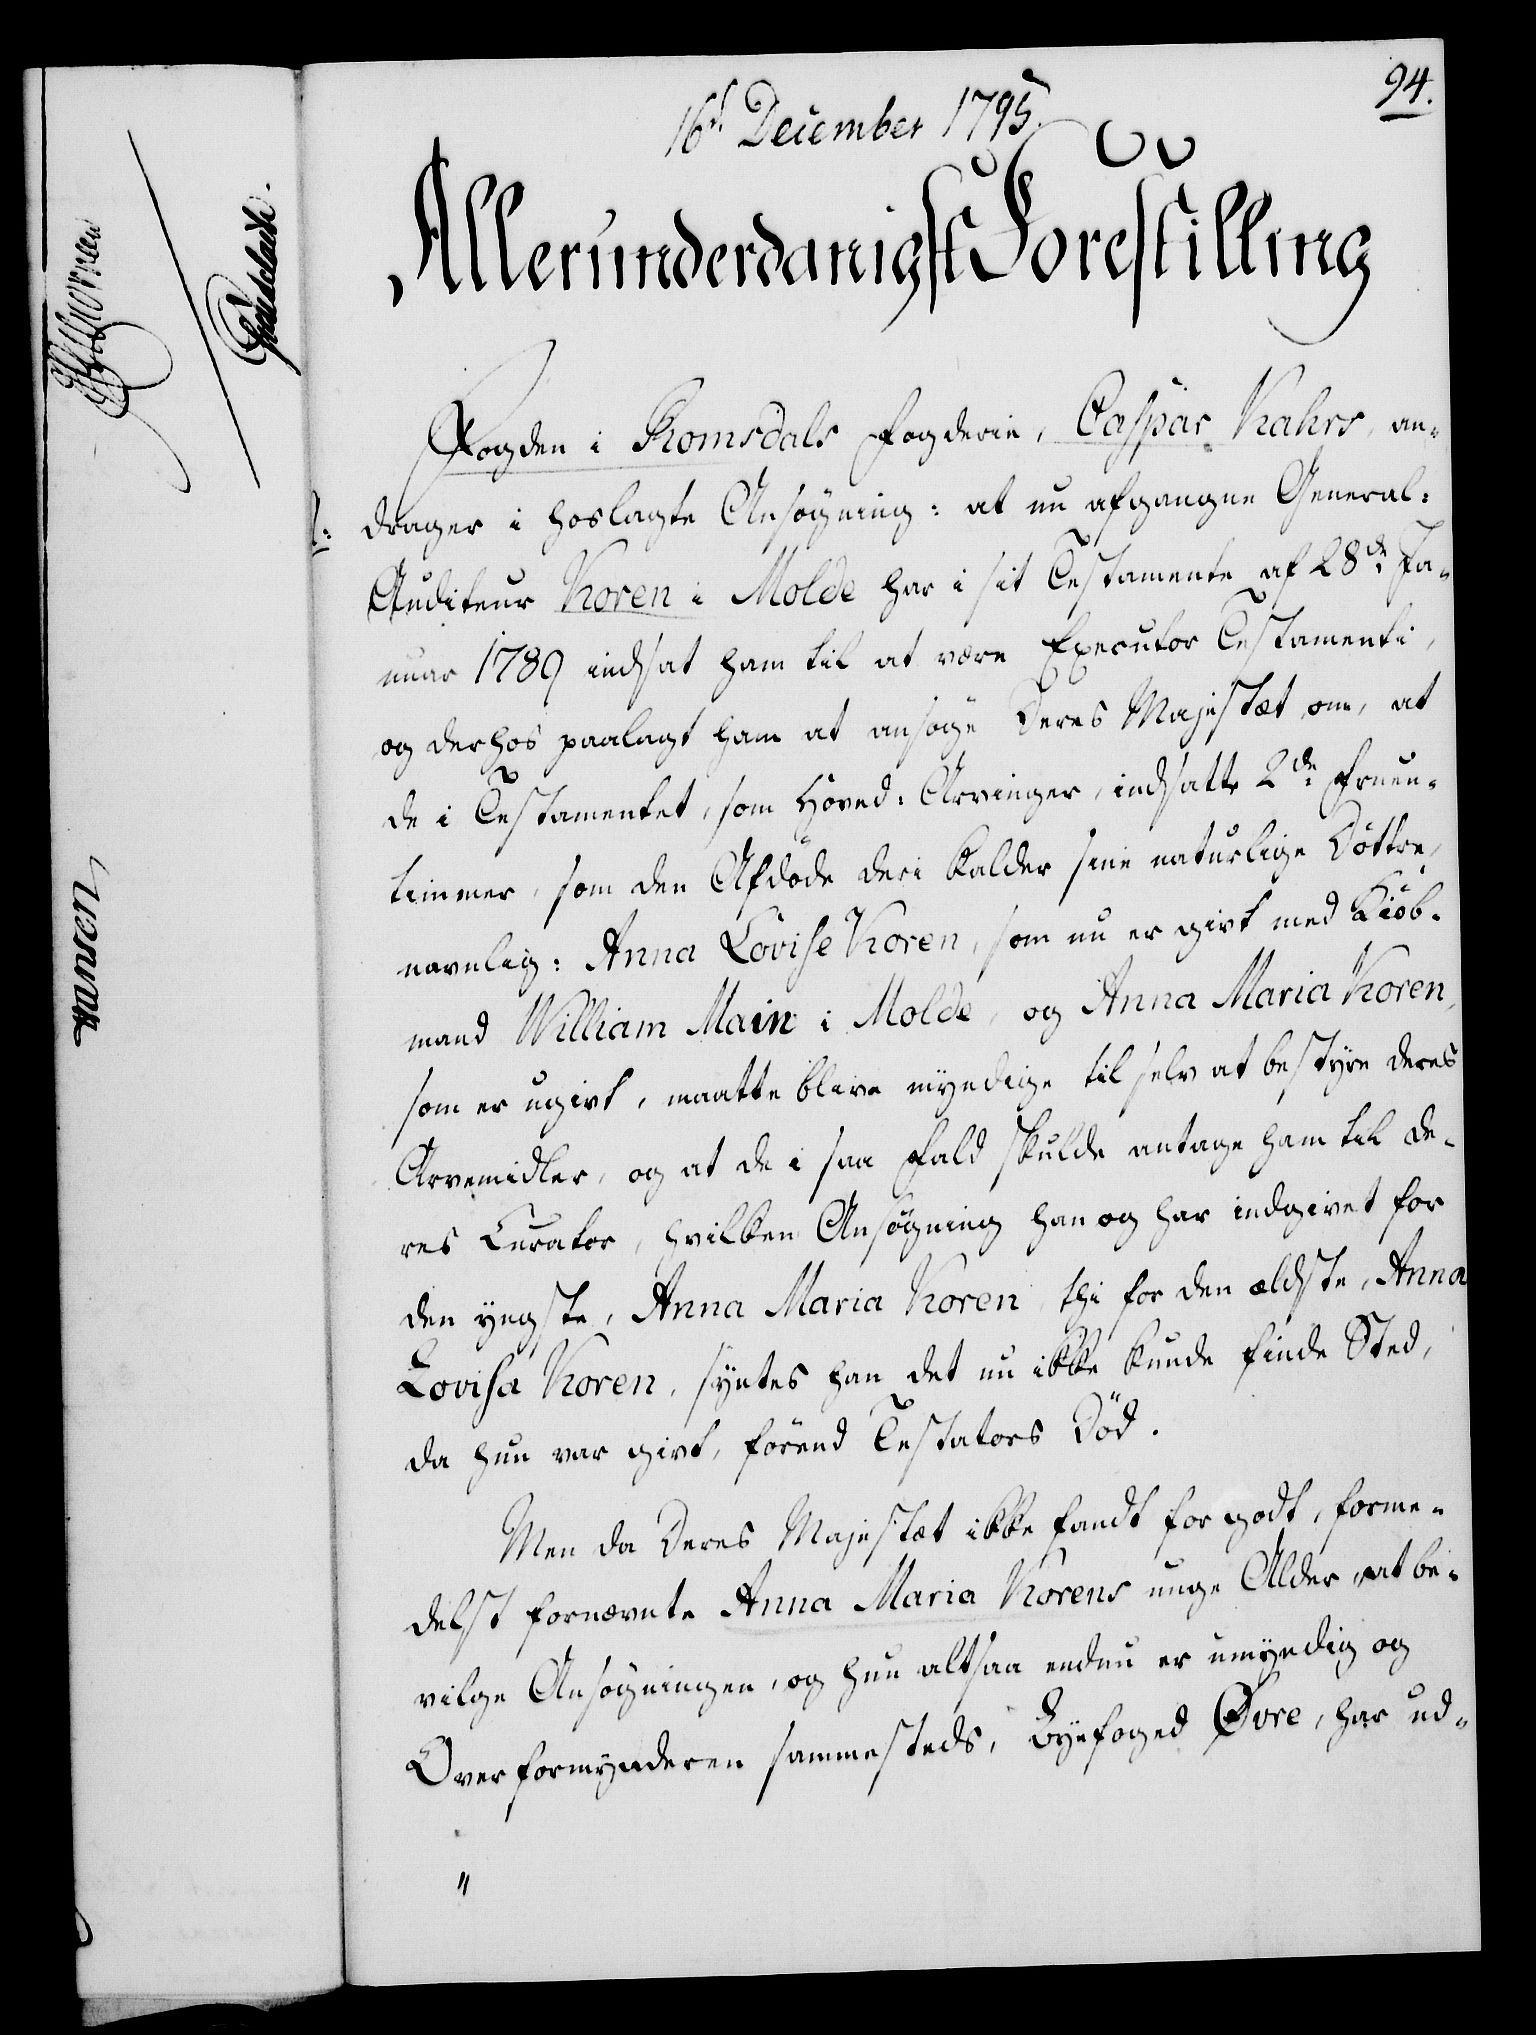 94.
16d December 1795.
Allerunderdanigst Forestilling
Fogden i Romsdals Fogderie, Caspar Kahrs, an-
drager i hoslagte Ansøgning: at nu afgangne General-
Auditeur Koren i Molde har i sit Testamente af 28de Ja-
nuar 1789 indsat ham til at være Executor Testamenti,
og derhos paalagt ham at ansøge Deres Majestæt om, at
de i Testamentet, som Hoved-Arvinger, indsatte 2de Fruen-
timmer, som den Afdøde deri kalder sine naturlige Døttre,
navnlig: Anna Lovise Koren, som nu er givt med Kiøb-
mand William Main i Molde, og Anna Maria Koren,
som er ugivt, maatte blive myndige til selv at bestyre deres
Arvemidler, og at de i saa Fald skulde antage ham til de-
res Curator, hvilken Ansøgning han og har indgivet for
den yngste, Anna Maria Koren, thi for den ældste, Anna
Lovisa Koren, syntes han det nu ikke kunde finde Sted,
da hun var givt, førend Testators Død.
Men da Deres Majestæt ikke fandt for godt, forme-
delst fornævnte Anna Maria Korens unge Alder, at be-
vilge Ansøgningen, og hun altsaa endnu er umyndig og
Overformynderen sammesteds, Byefoged Øvre, har ud-
"
Hansen